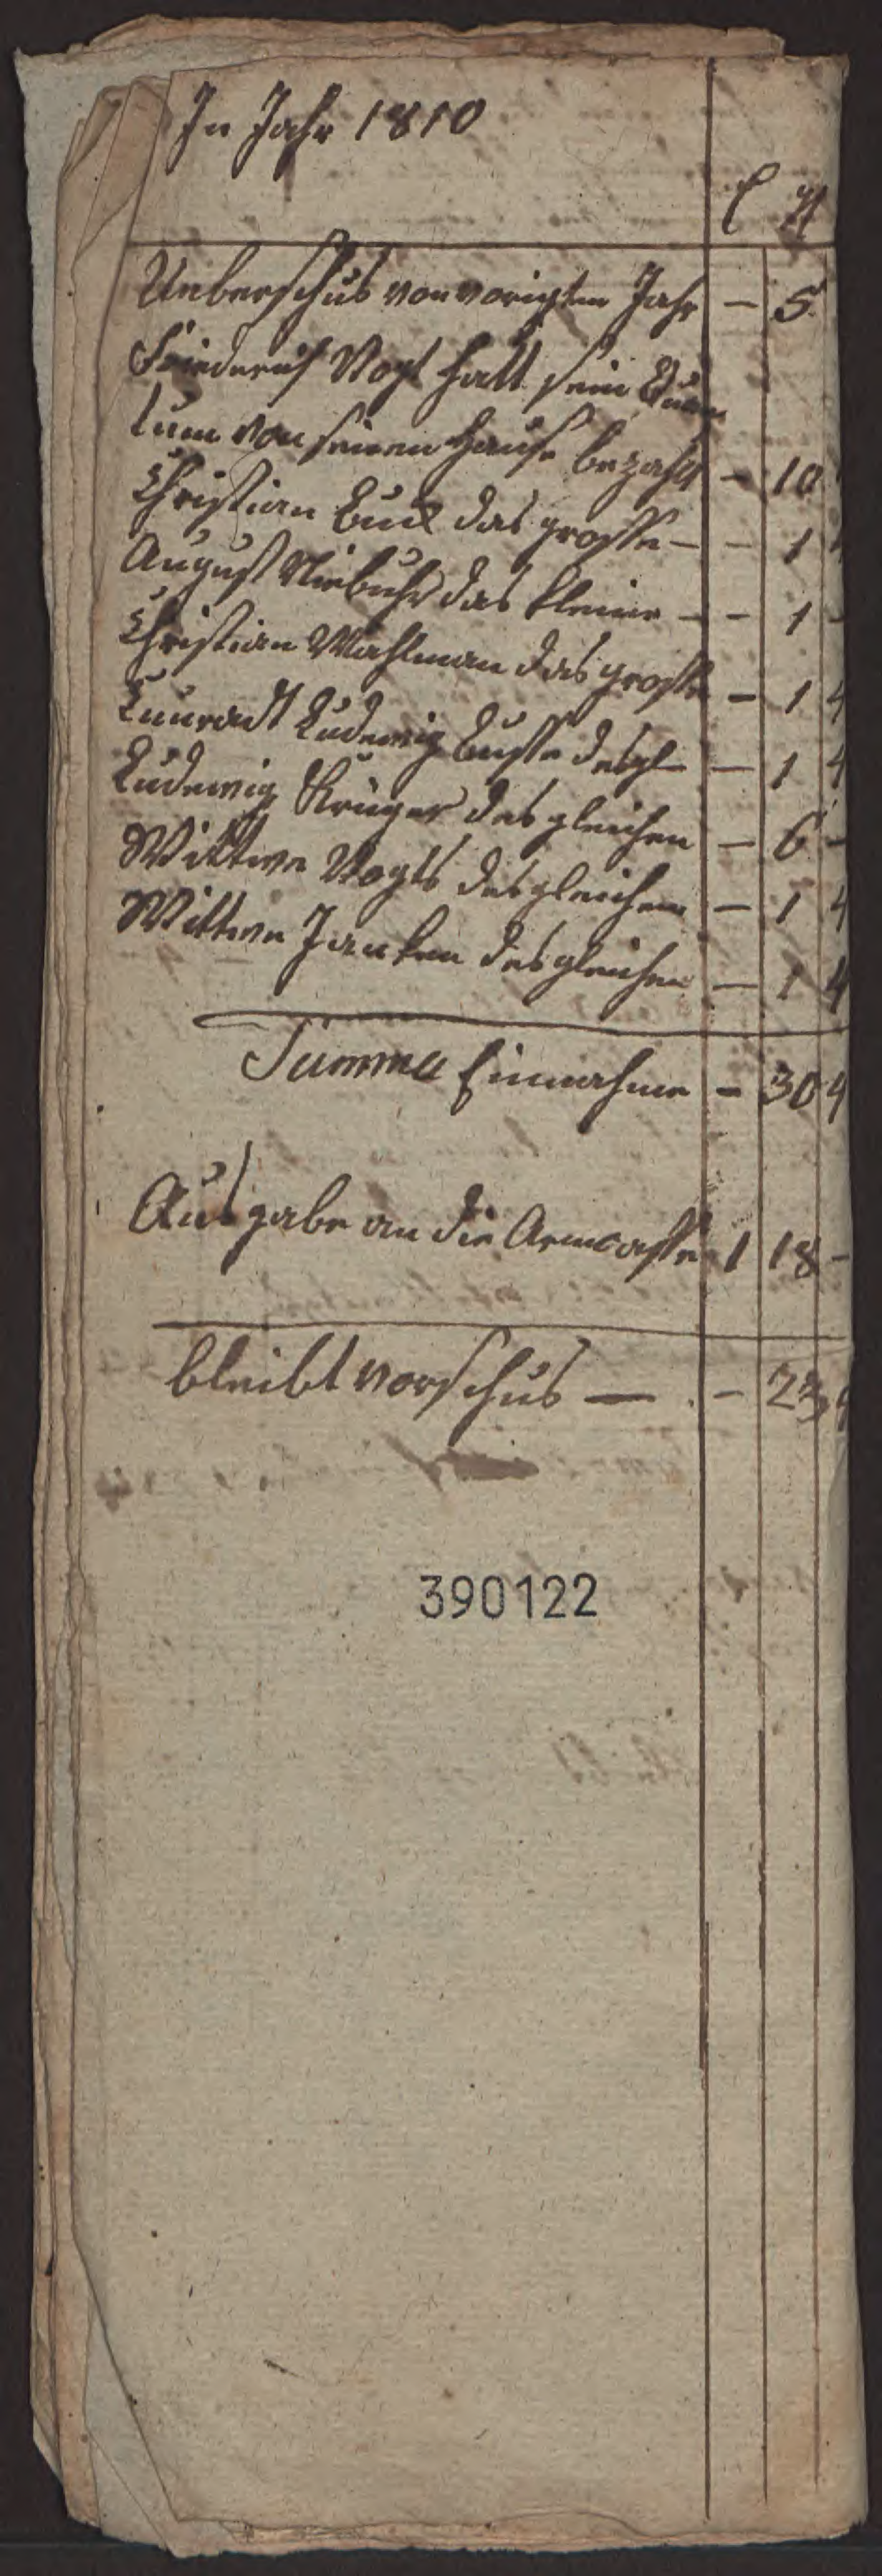 In Jahr 1810
Ueberschus von vorigten Jahr - 5
Friederich Vogt hatt sein Quan
tum von seinem Hause bezahlt - 10
Christian Buck das grosse - - 1
August Niebuhr das kleine - - 1 -
Christian Mahlman das grosse - 1 4
Cunradt Ludewig Busse desgl - 1 4
Ludewig Krüger des gleichen - 6 -
Wittwe Vogts desgleichen - 1 4
Wittwe Janken desgleichen - 1 4
Summa Einnahme - 30 4
Ausgabe an die Armcasse 1 18 -
bleibt vorschus - -
390122